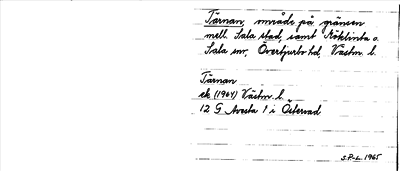 Tärnan, område på gränsen
mell. Sala stad, samt Möklinta o.
Sala snr, Övertjurbo hd, Västm. l.
Tärnan
ek (1964) Västm. l.
12 G Avesta 1 i Östervad
S.P-L. 1965